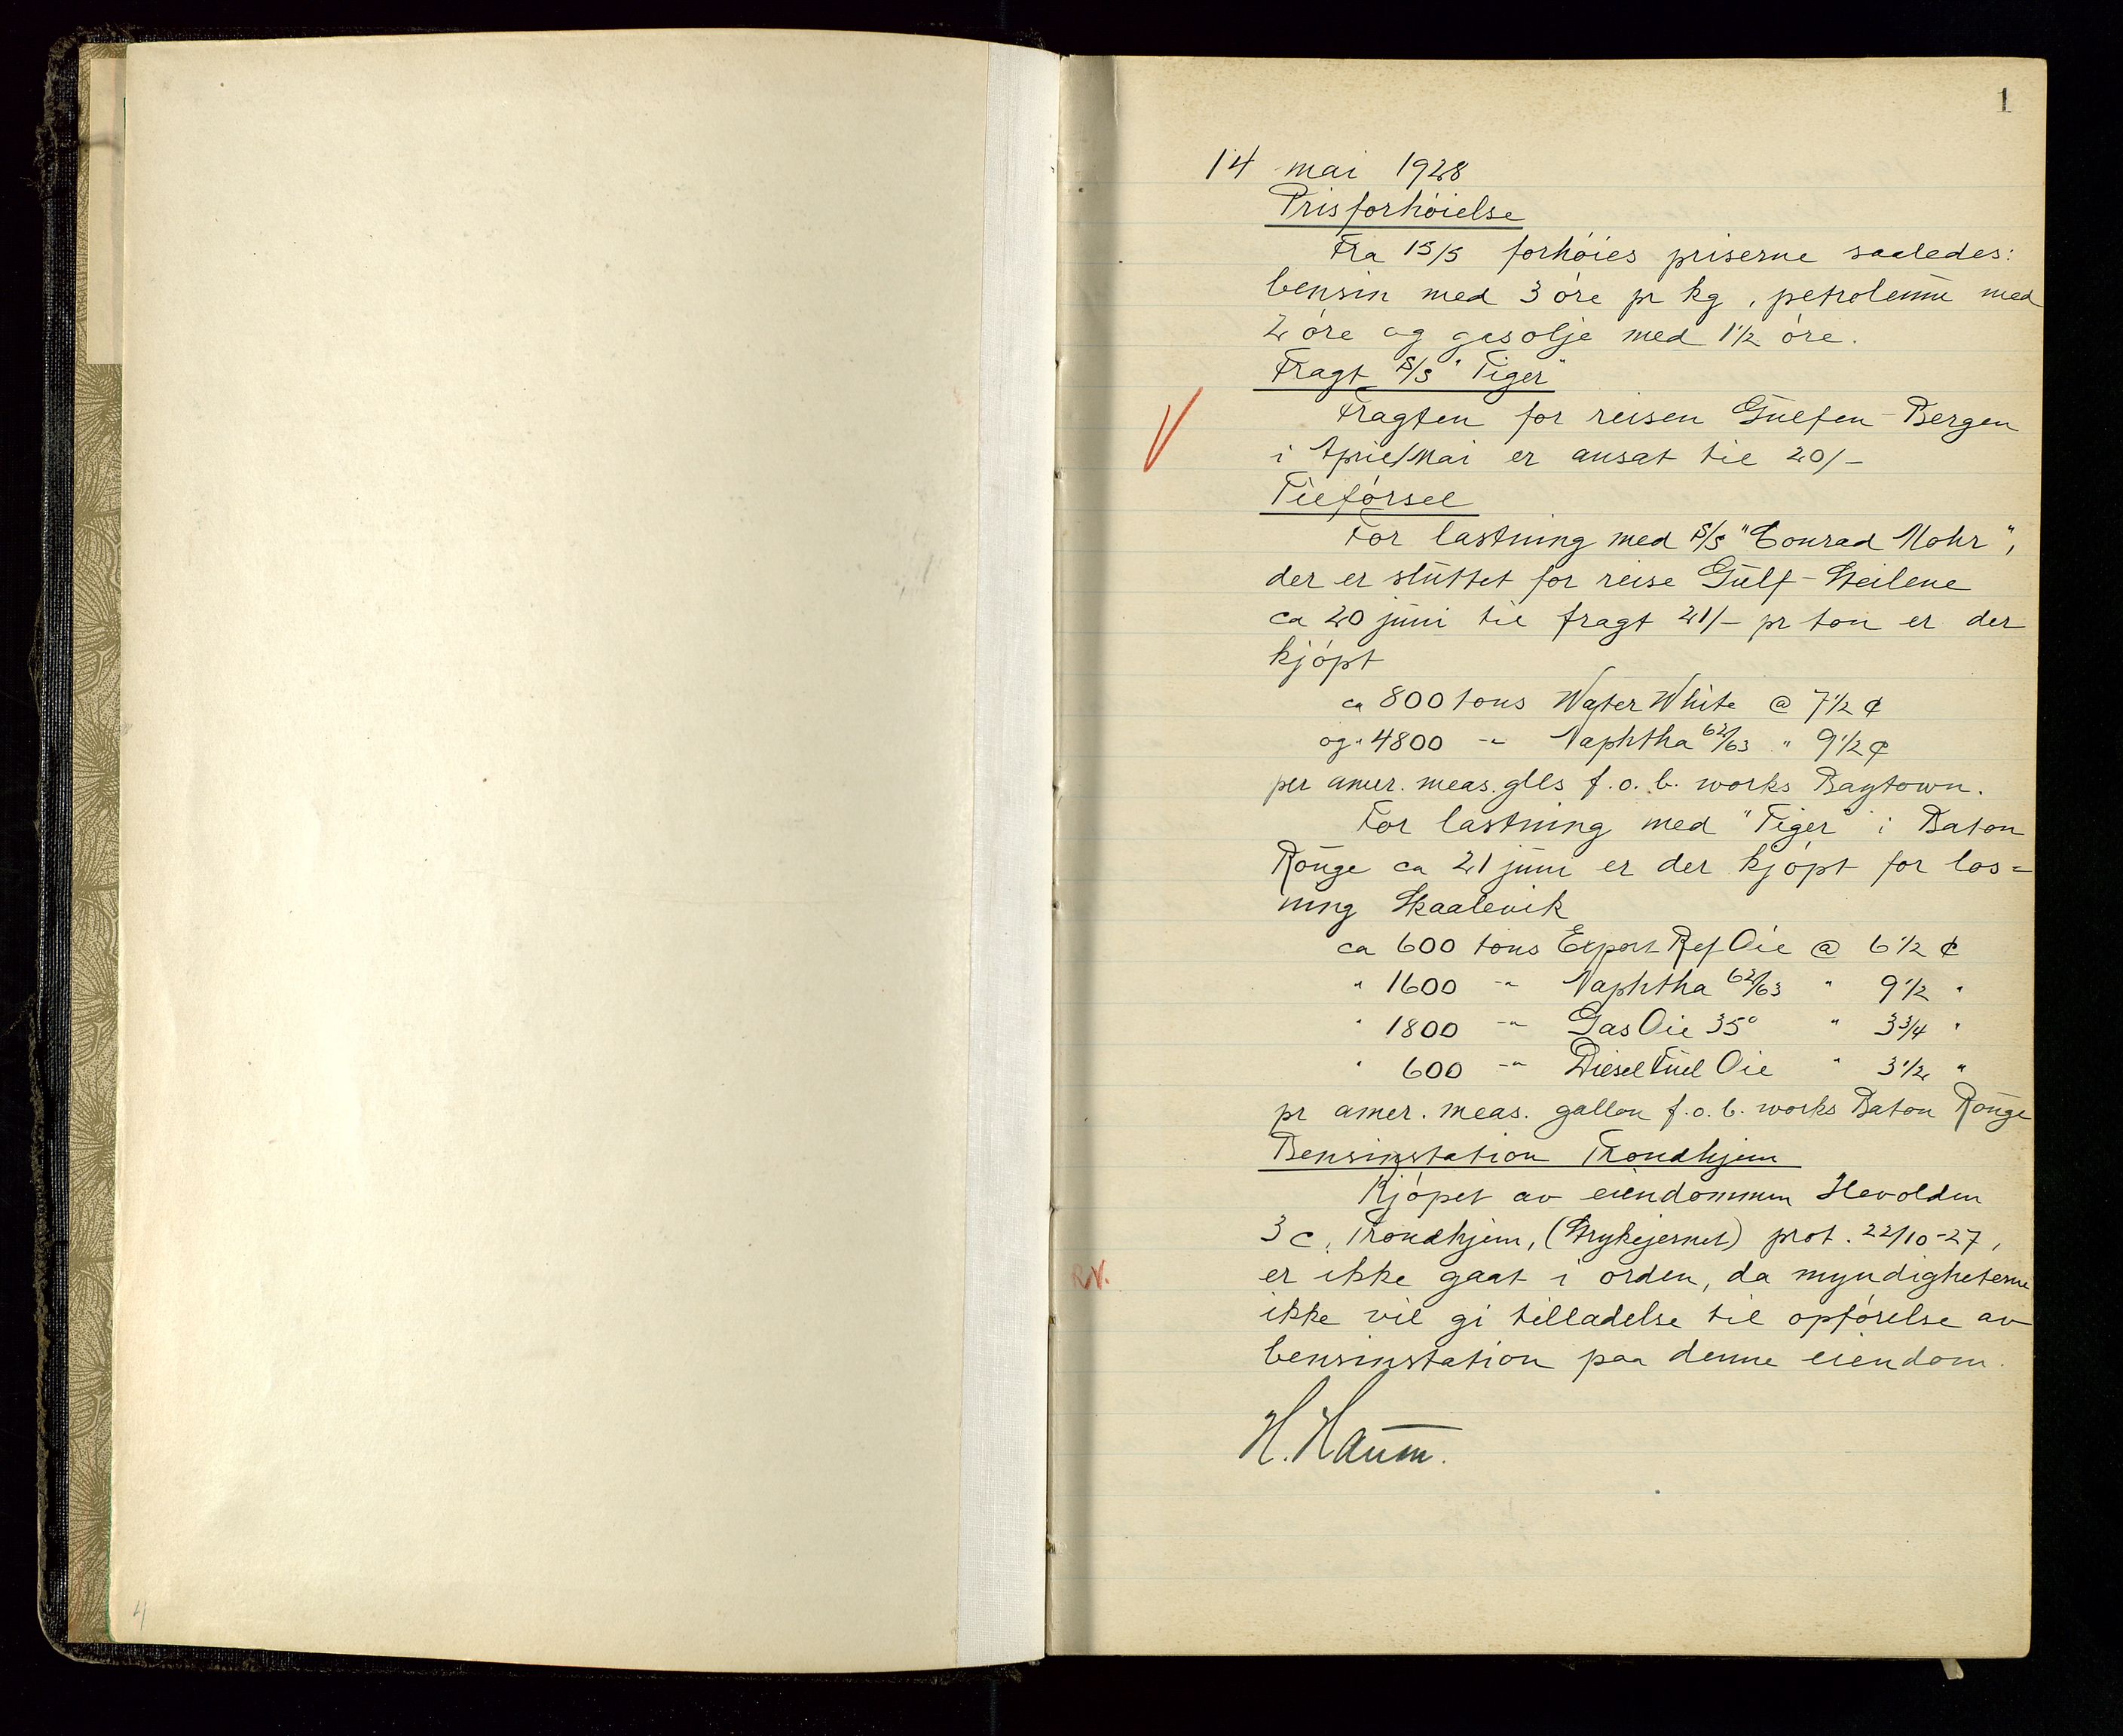 1
14 mai 1928
Prisforhöielse
Fra 15/5 forhöies priserne saaledes:
bensin med 3 öre pr kg, petroleum med
2 öre og gasolje med 1 1/2 öre.
Fragt S/S "Tiger"
Fragten for reisen Gulfen-Bergen
i April/Mai er ansat til 20/-
Tilförsel
For lastning med S/S "Conrad Mohr",
der er sluttet for reise Gulf-Steilene
ca 20 juni til fragt 21/- pr ton er der
kjöpt
ca 800 tons Water White @ 7 1/2 ¢
og " 4800 -"- Naphtha 62/63 " 9 1/2 ¢
per amer. meas. glls f.o.b. works Baytown.
For lastning med "Tiger" i Baton
Rouge ca 21 juni er der kjöpt for los=
ning Skaalevik
ca 600 tons Export Ref Oil @ 6 1/2 ¢
" 1600 -"- Naphtha 62/63 " 9 1/2 "
" 1800 -"- Gas Oil 35° " 3 3/4 "
" 600 -"- Diesel Fuel Oil " 3 1/2 "
pr amer. meas. gallon f.o.b. works Baton Rouge
Bensinstation Trondhjem
Kjöpet av eiendommen Ilevolden
3 c, Trondhjem, (Strykejernet) prot. 22/10-27,
R.V.
er ikke gaat i orden, da myndigheterne
ikke vil gi tilladelse til opförelse av
bensinstation paa denne eiendom.
H. Haum.
4